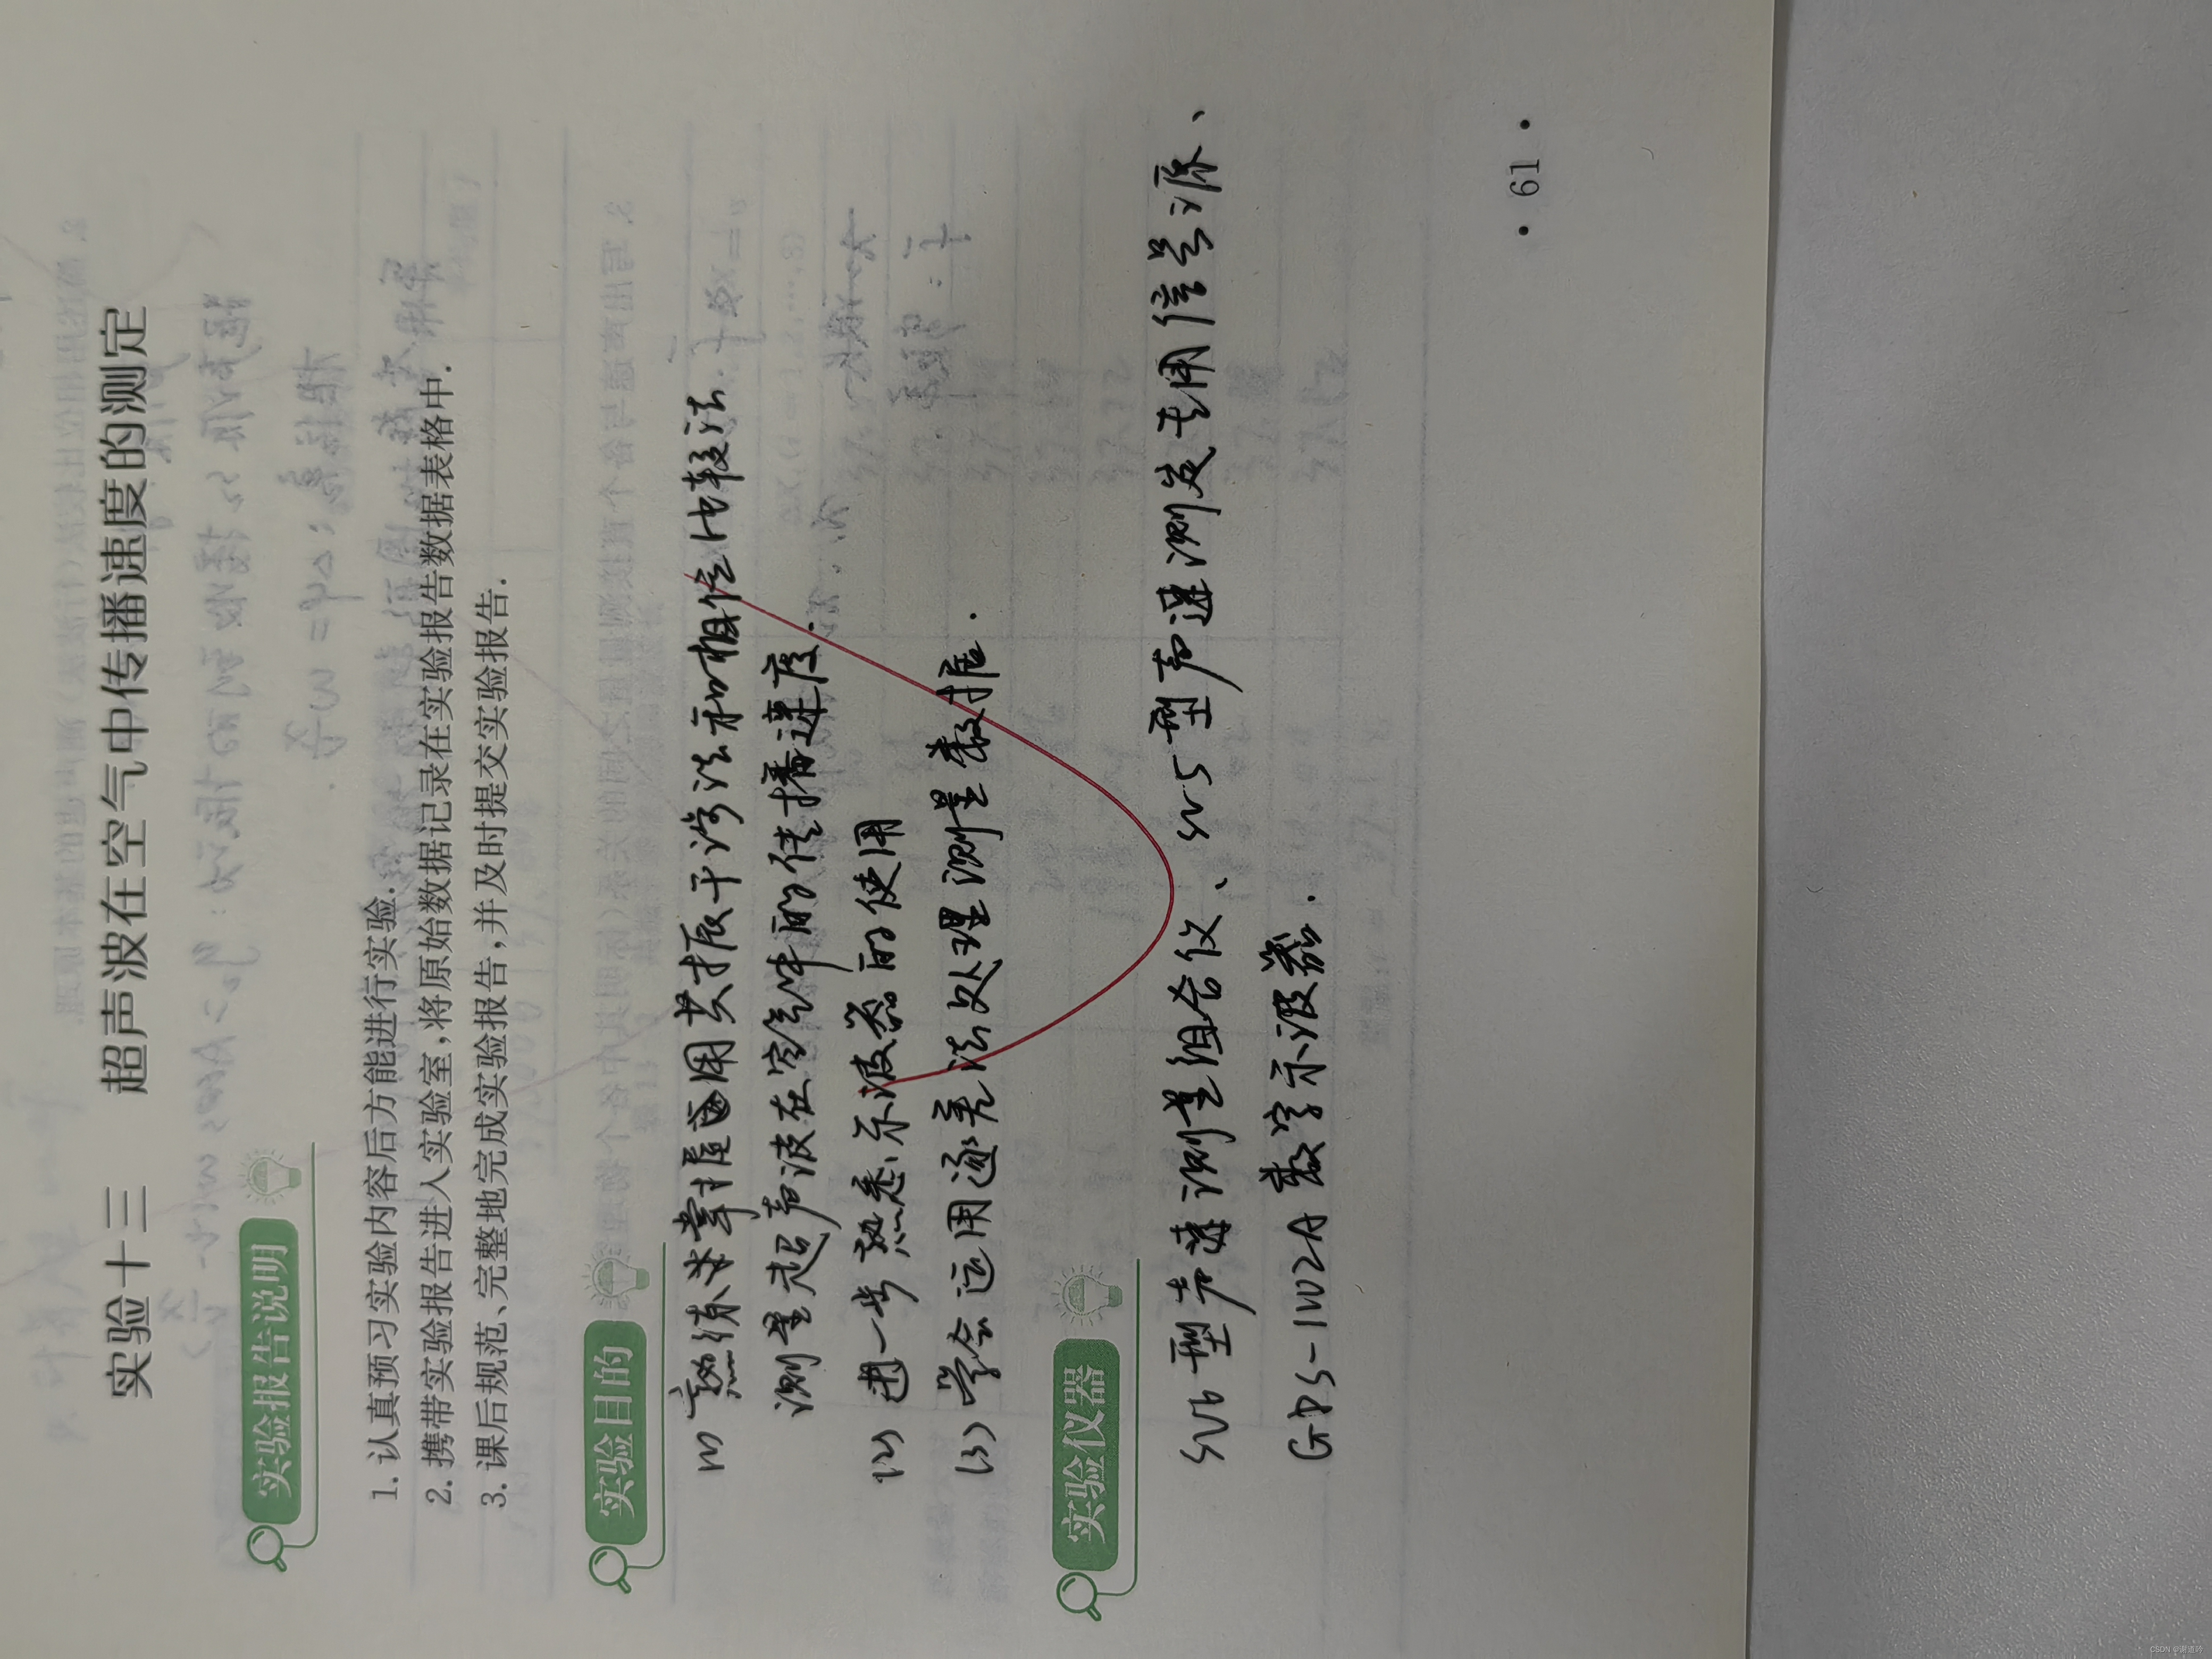 实验十三 超声波在空气中传播速度的测定
实验报告说明
1. 认真预习实验内容后方能进行实验.
2. 携带实验报告进入实验室,将原始数据记录在实验报告数据表格中.
3. 课后规范、完整地完成实验报告,并及时提交实验报告.
实验目的
(1) 熟练掌握用共振干涉法和相位比较法
测量超声波在空气中的传播速度.
(2) 进一步熟悉示波器的使用
(3) 学会运用逐差法处理测量数据.
实验仪器
SV6型声速测量组合仪、SV5型声速测定专用信号源、
GDS-1102A数字示波器.
• 61 •
CSDN @谢道韵